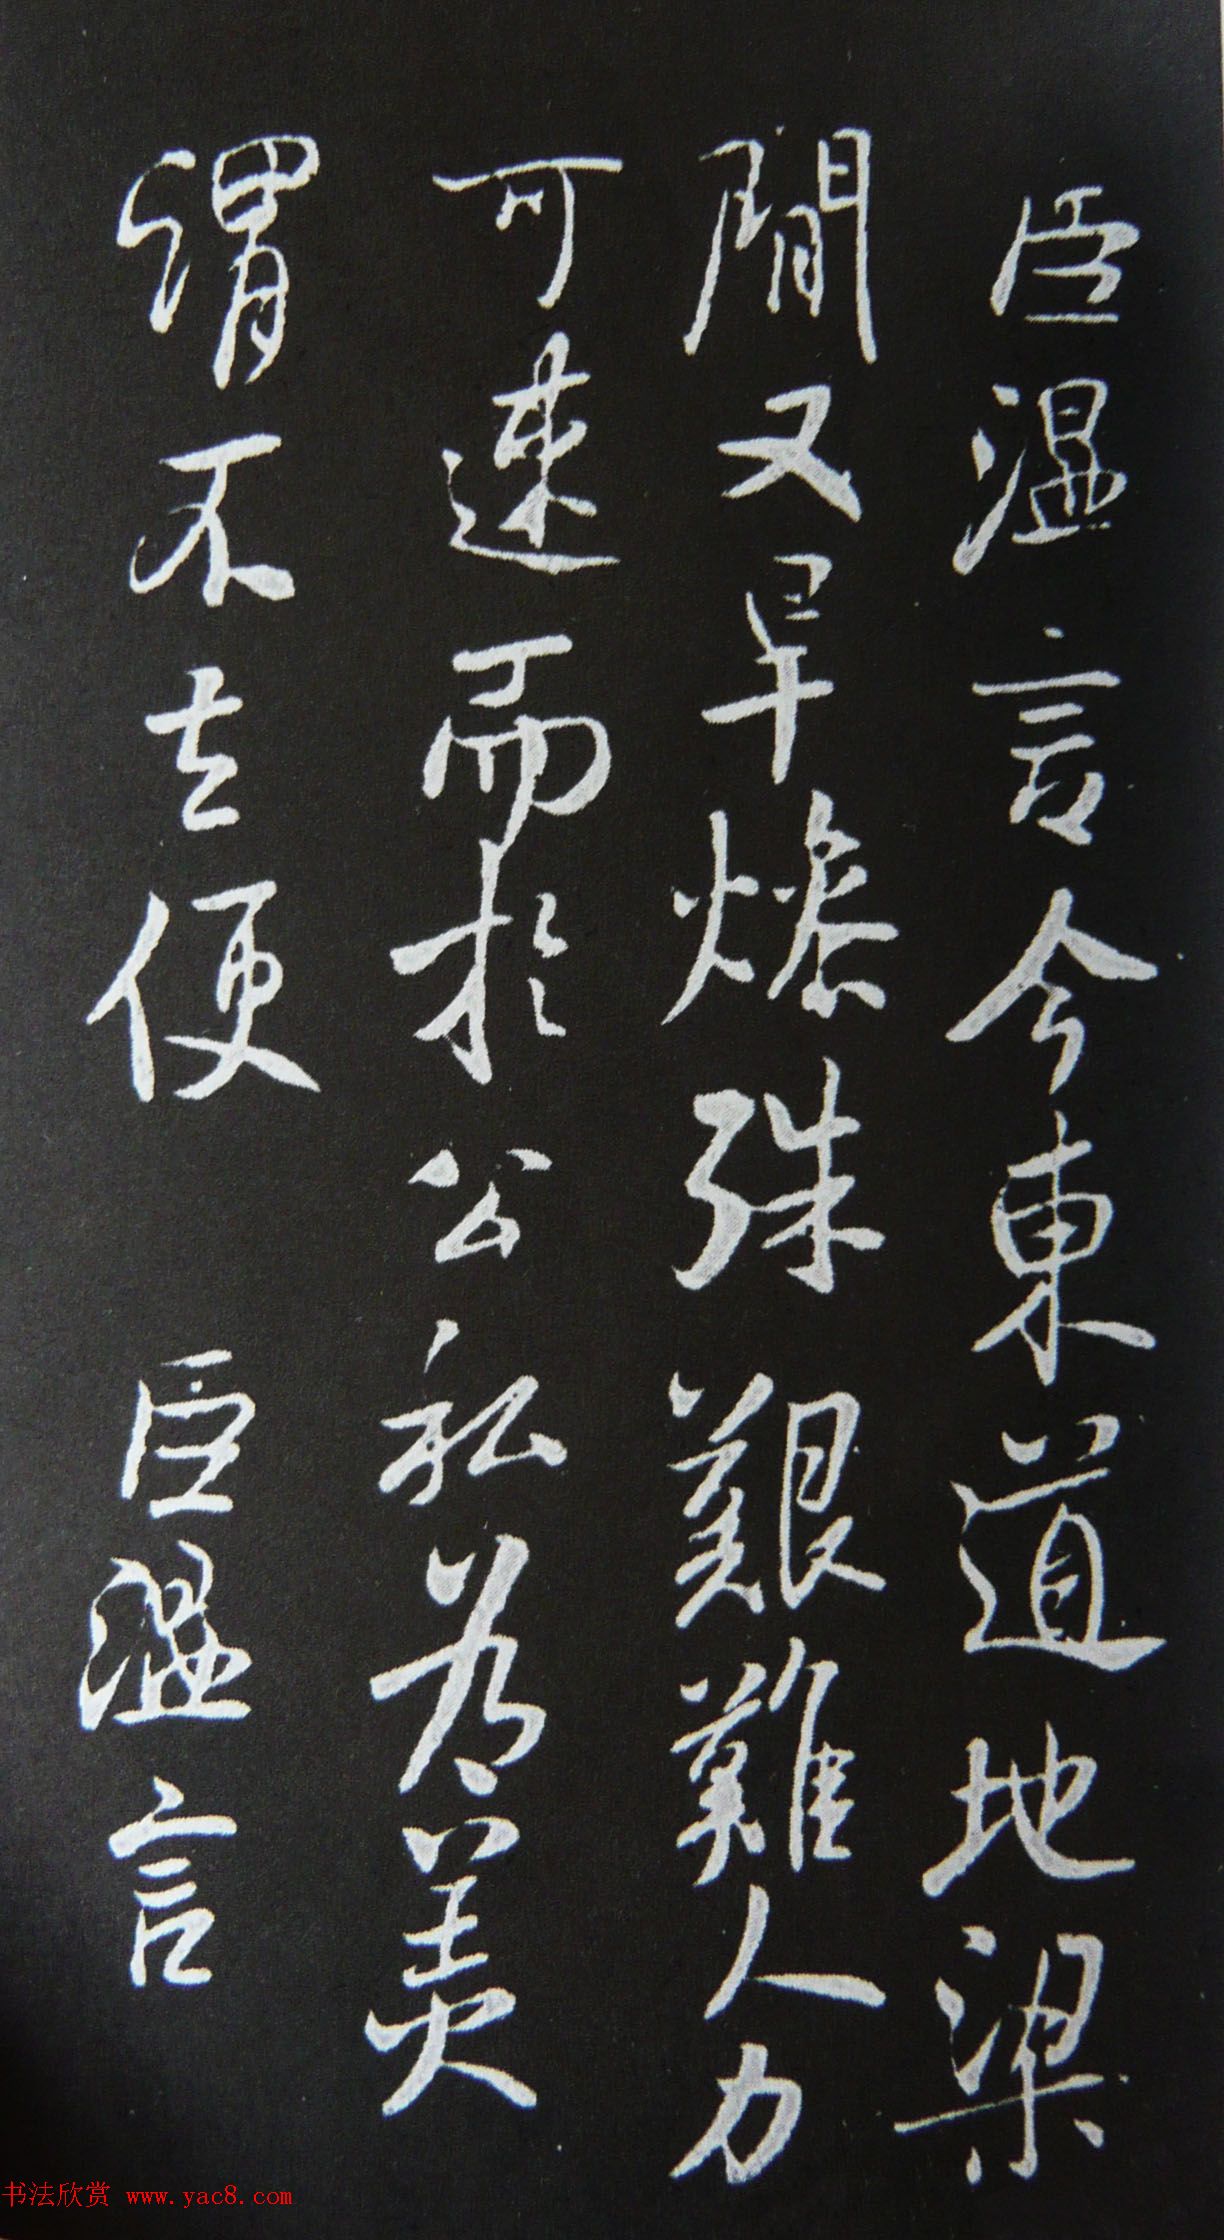 臣温言今東道地梁
間又旱燥殊艱難人力
可速而於公私爲美
謂不去便 臣温言
书法欣赏 www.yac8.com